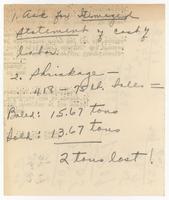 1. Ask for Itemized
statement of each
labor.
2. Shrinkage —
418 – 75 lb. bales =
Baled: 15.67 tons
Sold: 13.67 tons
2 tons lost!